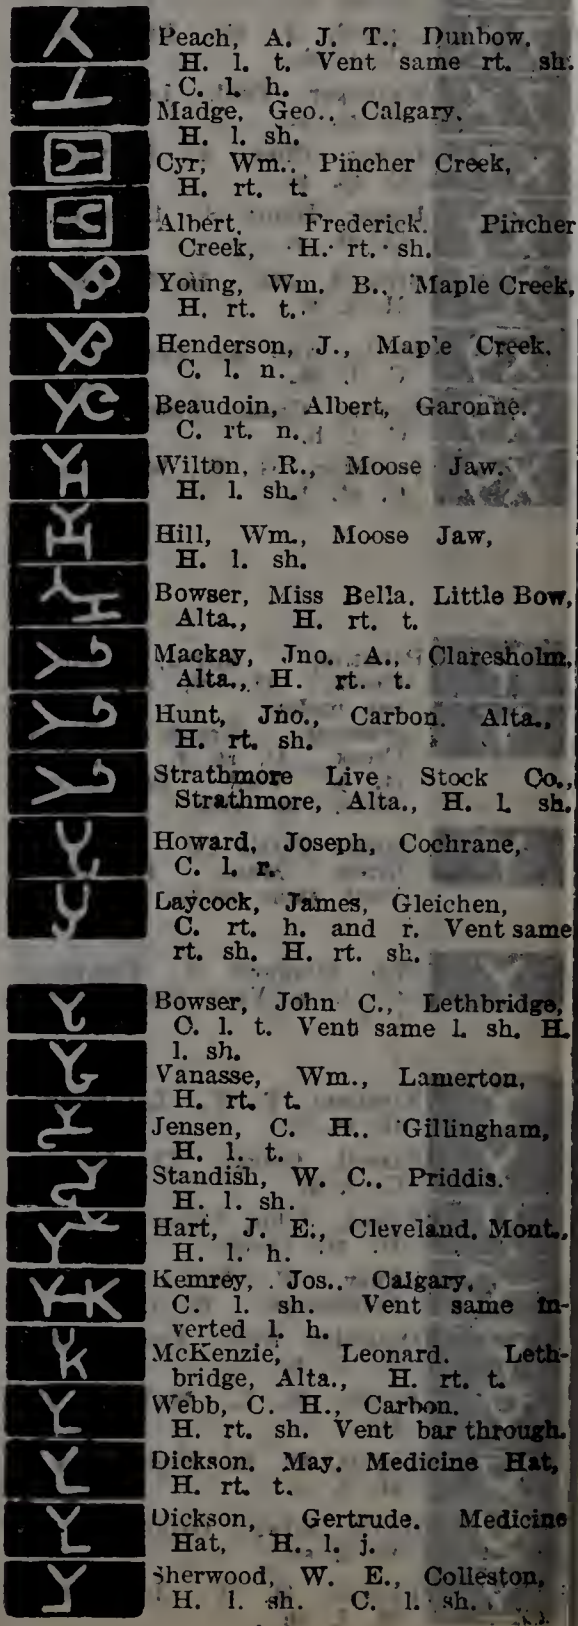 Peach, A. J. T., Dunbow.
H. l. t. Vent same rt. sh.
C. l. h.
Madge, Geo., Calgary.
H. l. sh.
Cyr, Wm., Pincher Creek,
H. rt. t.
Albert, Frederick. Pincher
Creek, H. rt. sh.
Young, Wm. B., Maple Creek,
H. rt. t.
Henderson, J., Maple Creek.
C. l. n.
Beaudoin, Albert, Garonne.
C. rt. n.
Wilton, R., Moose Jaw.
H. l. sh.
Hill, Wm., Moose Jaw,
H. l. sh.
Bowser, Miss Bella. Little Bow,
Alta., H. rt. t.
Mackay, Jno. A., Claresholm,
Alta., H. rt. t.
Hunt, Jno., Carbon. Alta.,
H. rt. sh.
Strathmore Live Stock Co.,
Strathmore, Alta., H. l. sh.
Howard, Joseph, Cochrane,
C. l. r.
Laycock, James, Gleichen,
C. rt. h. and r. Vent same
rt. sh. H. rt. sh.
Bowser, John C., Lethbridge,
C. l. t. Vent same l. sh. H.
l. sh.
Vanasse, Wm., Lamerton,
H. rt. t.
Jensen, C. H., Gillingham,
H. l. t.
Standish, W. C., Priddis.
H. l. sh.
Hart, J. E., Cleveland, Mont.,
H. l. h.
Kemrey, Jos., Calgary,
C. l. sh. Vent same in-
verted l. h.
McKenzie, Leonard. Leth-
bridge, Alta., H. rt. t.
Webb, C. H., Carbon.
H. rt. sh. Vent bar through.
Dickson, May. Medicine Hat,
H. rt. t.
Dickson, Gertrude. Medicine
Hat, H. l. j.
Sherwood, W. E., Colleston,
H. l. sh. C. l. sh.